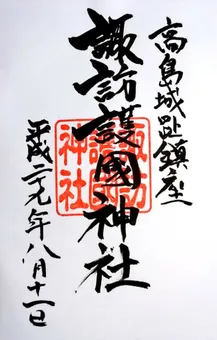 高島城趾鎮座
諏訪護國神社
平成二十九年八月十一日
諏訪護國神社